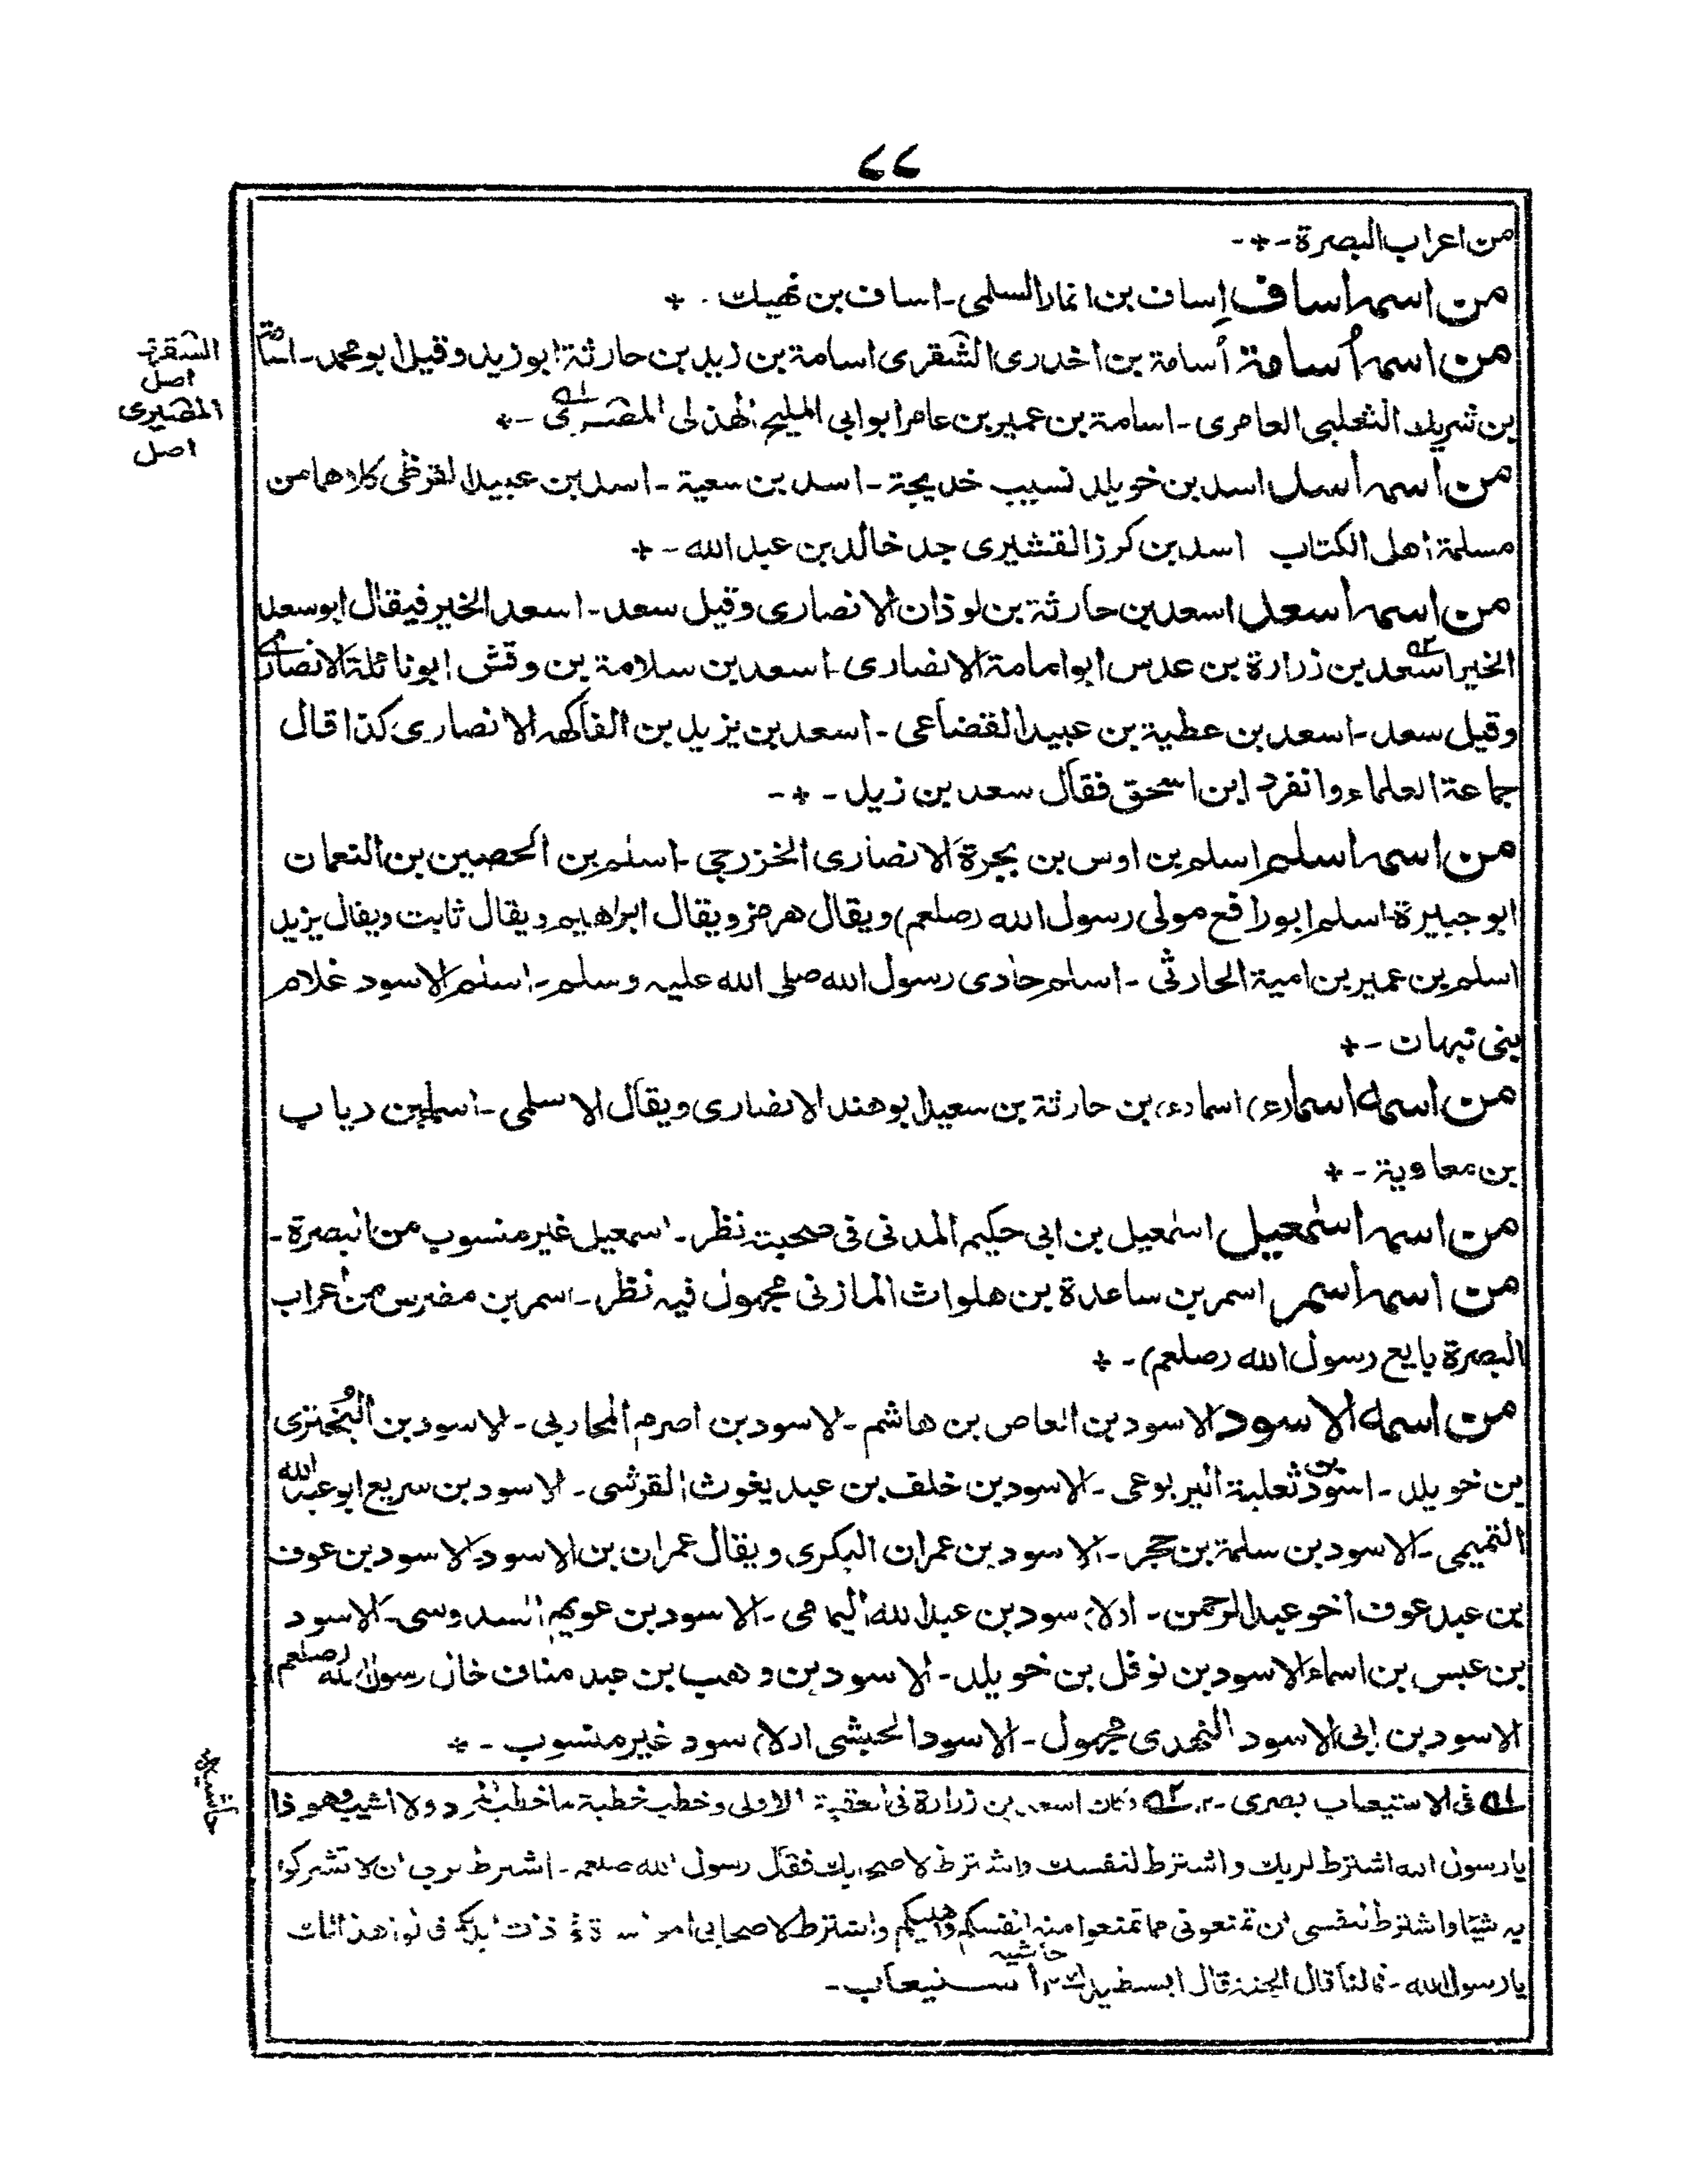 ٧٧
من اعراب البصرة -+-
من اسمه اساف إساف بن انمار السلمى - اساف بن نهيك . +
من اسمه أسامة أسامة بن اخدرى الشقرى اسامة بن زيد بن حارثة ابو زيد وقيل ابو محمد - اسامة
بن شريك الثعلبى العامرى - اسامة بن عمير بن عامر ابو ابى المليح الهذلى -+
من اسمه أسد اسد بن خويلد نسيب خديجة - اسد بن سعية - اسد بن عبيد القرظى كلاهما من
مسلمة اهل الكتاب اسد بن كرز القشيرى جد خالد بن عبد الله -+
من اسمه أسعد اسعد بن حارثة بن لوذان الانصارى وقيل سعد - اسعد الخير فيقال ابو سعد
الخير اسعد بن زرارة بن عدس ابو امامة الانصارى - اسعد بن سلامة بن وقش ابو نائلة الانصارى
وقيل سعد - اسعد بن عطية بن عبيد القضاعى - اسعد بن يزيد بن الفاكهه الانصارى كذا قال
جماعة العلماء وانفرد ابن اسحق فقال سعد بن زيد -+-
من اسمه اسلم اسلم بن اوس بن بجرة الانصارى الخزرجى - اسلم بن الحصين بن النعمان
ابو جبيرة - اسلم ابو رافع مولى رسول الله (صلعم) ويقال هرمز ويقال ابراهيم ويقال ثابت ويقال يزيد
اسلم بن عمير بن امية الحارثى - اسلم حادى رسول الله صلى الله عليه وسلم - اسلم الاسود غلام
بنى نبهان -+
من اسمه اسما(ء) اسما(ء) بن حارثة بن سعيد ابو هند الانصارى ويقال الاسلمى - اسماء بن رياب
بن معاوية -+
من اسمه اسمعيل اسمعيل بن ابى حكيم المدنى فى صحبته نظر - اسمعيل غير منسوب من البصرة -
من اسمه أسمر اسمر بن ساعدة بن هلواث المازنى مجهول فيه نظر - اسمر بن مضرس من اعراب
البصرة بايع رسول الله (صلعم) -+
من اسمه الاسود الاسود بن العاص بن هاشم - الاسود بن اصرم المحاربى - الاسود بن البُختزى
بن خويلد - اسود بن ثعلبة اليربوعى - الاسود بن خلف بن عبد يغوث القرشى - الاسود بن سريع ابو عبد الله
التميمى - الاسود بن سلمة بن حجر - الاسود بن عمران البكرى ويقال عمران بن الاسود - الاسود بن عوف
بن عبد عوف اخو عبد الرحمن - ال(ا)سود بن عبد الله اليمامى - الاسود بن عويم السدوسى - الاسود
بن عبس بن اسماء الاسود بن نوفل بن خويلد - الاسود بن وهب بن عبد مناف خال رسول الله (صلعم)
الاسود بن ابى الاسود النهدى مجهول - الاسود الحبشى ال(ا)سود غير منسوب -+
الشقرة -
اصل
المضيرى
اصل
حاشيه
١ فى الاستيعاب بصرى - ٢ وكان اسعد بن زرارة فى العقبة الاولى وخطب خطبة ما خطب امرد ولا اشيب وهو ذا
يا رسول الله اشترط لربك واشترط لنفسك واشترط لاصحابك فقال رسول الله صلعم - اشترط لرب ان لا تشركوا
به شيئا واشترط لنفسى ان تمنعونى مما تمنعوا منه انفسكم واهليكم واشترط لاصحابى ذات
يا رسول الله - فما لنا قال الجنة قال ابسط يدك حاشيه استيعاب -